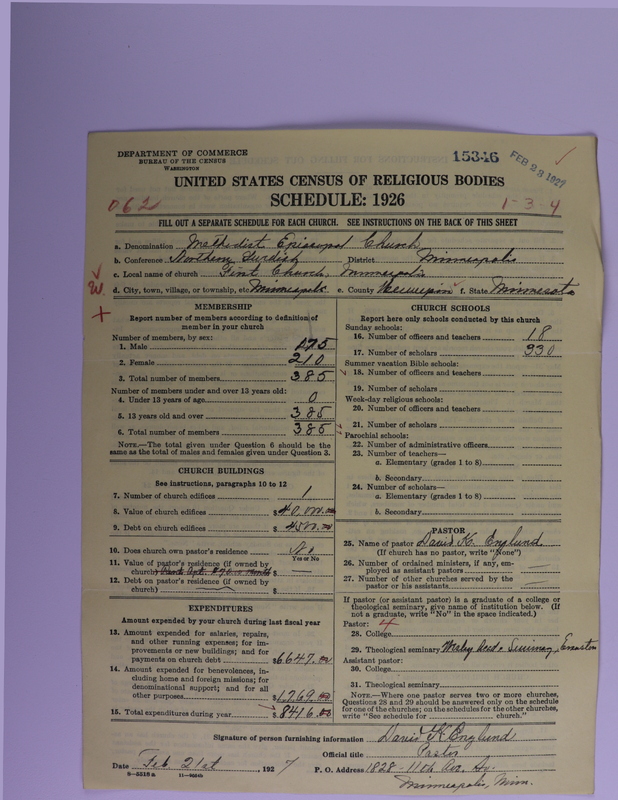 DEPARTMENT OF COMMERCE
BUREAU OF THE CENSUS
WASHINGTON
15346
FEB 28 1927
UNITED STATES CENSUS OF RELIGIOUS BODIES
SCHEDULE: 1926
062
1-3-4
FILL OUT A SEPARATE SCHEDULE FOR EACH CHURCH. SEE INSTRUCTIONS ON THE BACK OF THIS SHEET
a. Denomination Methodist Episcopal Church
b. Conference Northern Swedish District Minneapolis
c. Local name of church First Church, Minneapolis
d. City, town, village, or township, etc. Minneapolis e. County Hennepin f. State Minnesota
W
MEMBERSHIP
Report number of members according to definition of
member in your church
Number of members, by sex:
1. Male 175
2. Female 210
3. Total number of members 385
Number of members under and over 13 years old:
4. Under 13 years of age 0
5. 13 years old and over 385
6. Total number of members 385
NOTE.—The total given under Question 6 should be the
same as the total of males and females given under Question 3.
CHURCH BUILDINGS
See instructions, paragraphs 10 to 12
7. Number of church edifices 1
8. Value of church edifices $40,000.00
9. Debt on church edifices $4500.00
10. Does church own pastor's residence No
Yes or No
11. Value of pastor's residence (if owned by
church) $ —
12. Debt on pastor's residence (if owned by
church) $
EXPENDITURES
Amount expended by your church during last fiscal year
13. Amount expended for salaries, repairs,
and other running expenses; for im-
provements or new buildings; and for
payments on church debt $6647.00
14. Amount expended for benevolences, in-
cluding home and foreign missions; for
denominational support; and for all
other purposes $1769.00
15. Total expenditures during year $8416.00
CHURCH SCHOOLS
Report here only schools conducted by this church
Sunday schools:
16. Number of officers and teachers 18
17. Number of scholars 330
Summer vacation Bible schools:
18. Number of officers and teachers
19. Number of scholars
Week-day religious schools:
20. Number of officers and teachers
21. Number of scholars
Parochial schools:
22. Number of administrative officers
23. Number of teachers—
a. Elementary (grades 1 to 8)
b. Secondary
24. Number of scholars—
a. Elementary (grades 1 to 8)
b. Secondary
PASTOR
25. Name of pastor David K. Englund
(If church has no pastor, write "None")
26. Number of ordained ministers, if any, em-
ployed as assistant pastors —
27. Number of other churches served by the
pastor or his assistants —
If pastor (or assistant pastor) is a graduate of a college or
theological seminary, give name of institution below. (If
not a graduate, write "No" in the space indicated.)
Pastor: 4
28. College
29. Theological seminary Wesley Acad. Seminary, Evanston
Assistant pastor:
30. College
31. Theological seminary
NOTE.—Where one pastor serves two or more churches,
Questions 28 and 29 should be answered only on the schedule
for one of the churches; on the schedules for the other churches,
write "See schedule for church."
Signature of person furnishing information David K. Englund
Official title Pastor
Date Feb 21st, 1927 P. O. Address 1828 - 11th Av. So.
Minneapolis, Minn.
8—5518 a